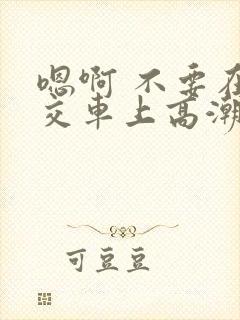 嗯啊 不要在
交车上高潮
可豆豆